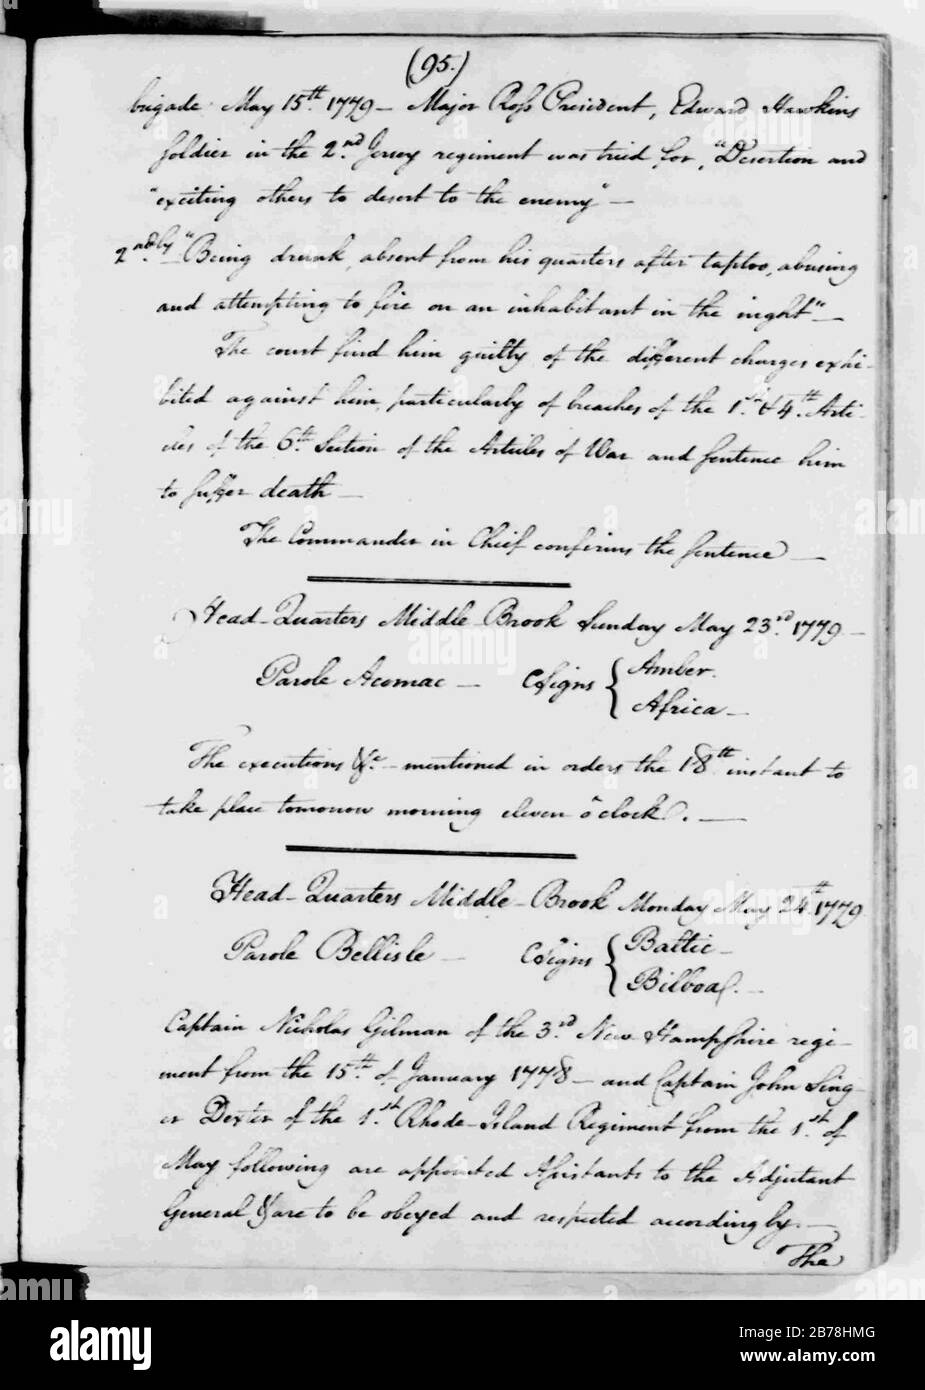 (95.)
brigade May 15th. 1779 — Major Ross President, Edward Hawkins
soldier in the 2nd. Jersey regiment was tried for, "Desertion and
"exciting others to desert to the enemy" —
2ndly "Being drunk, absent from his quarters after taptoo, abusing
and attempting to fire on an inhabitant in the night" —
The court find him guilty of the different charges exhi-
bited against him, particularly of breaches of the 1st. & 4th. Arti-
cles of the 6th. Section of the Articles of War and sentence him
to suffer death —
The Commander in Chief confirms the sentence —
Head-Quarters Middle-Brook Sunday May 23rd. 1779 —
Parole Acomac — CSigns { Amber.
Africa —
The executions &c. — mentioned in orders the 18th. instant to
take place tomorrow morning eleven o'clock. —
Head-Quarters Middle-Brook Monday May 24th. 1779
Parole Bellisle — CSigns { Baltic —
Bilboa. —
Captain Nicholas Gilman of the 3rd. New Hampshire regi-
ment from the 15th. of January 1778 — and Captain John Sing-
er Dexter of the 1st. Rhode-Island Regiment from the 1st. of
May following are appointed Assistants to the Adjutant
General & are to be obeyed and respected accordingly. —
The
alamy
Image ID: 2B78HMG
www.alamy.com